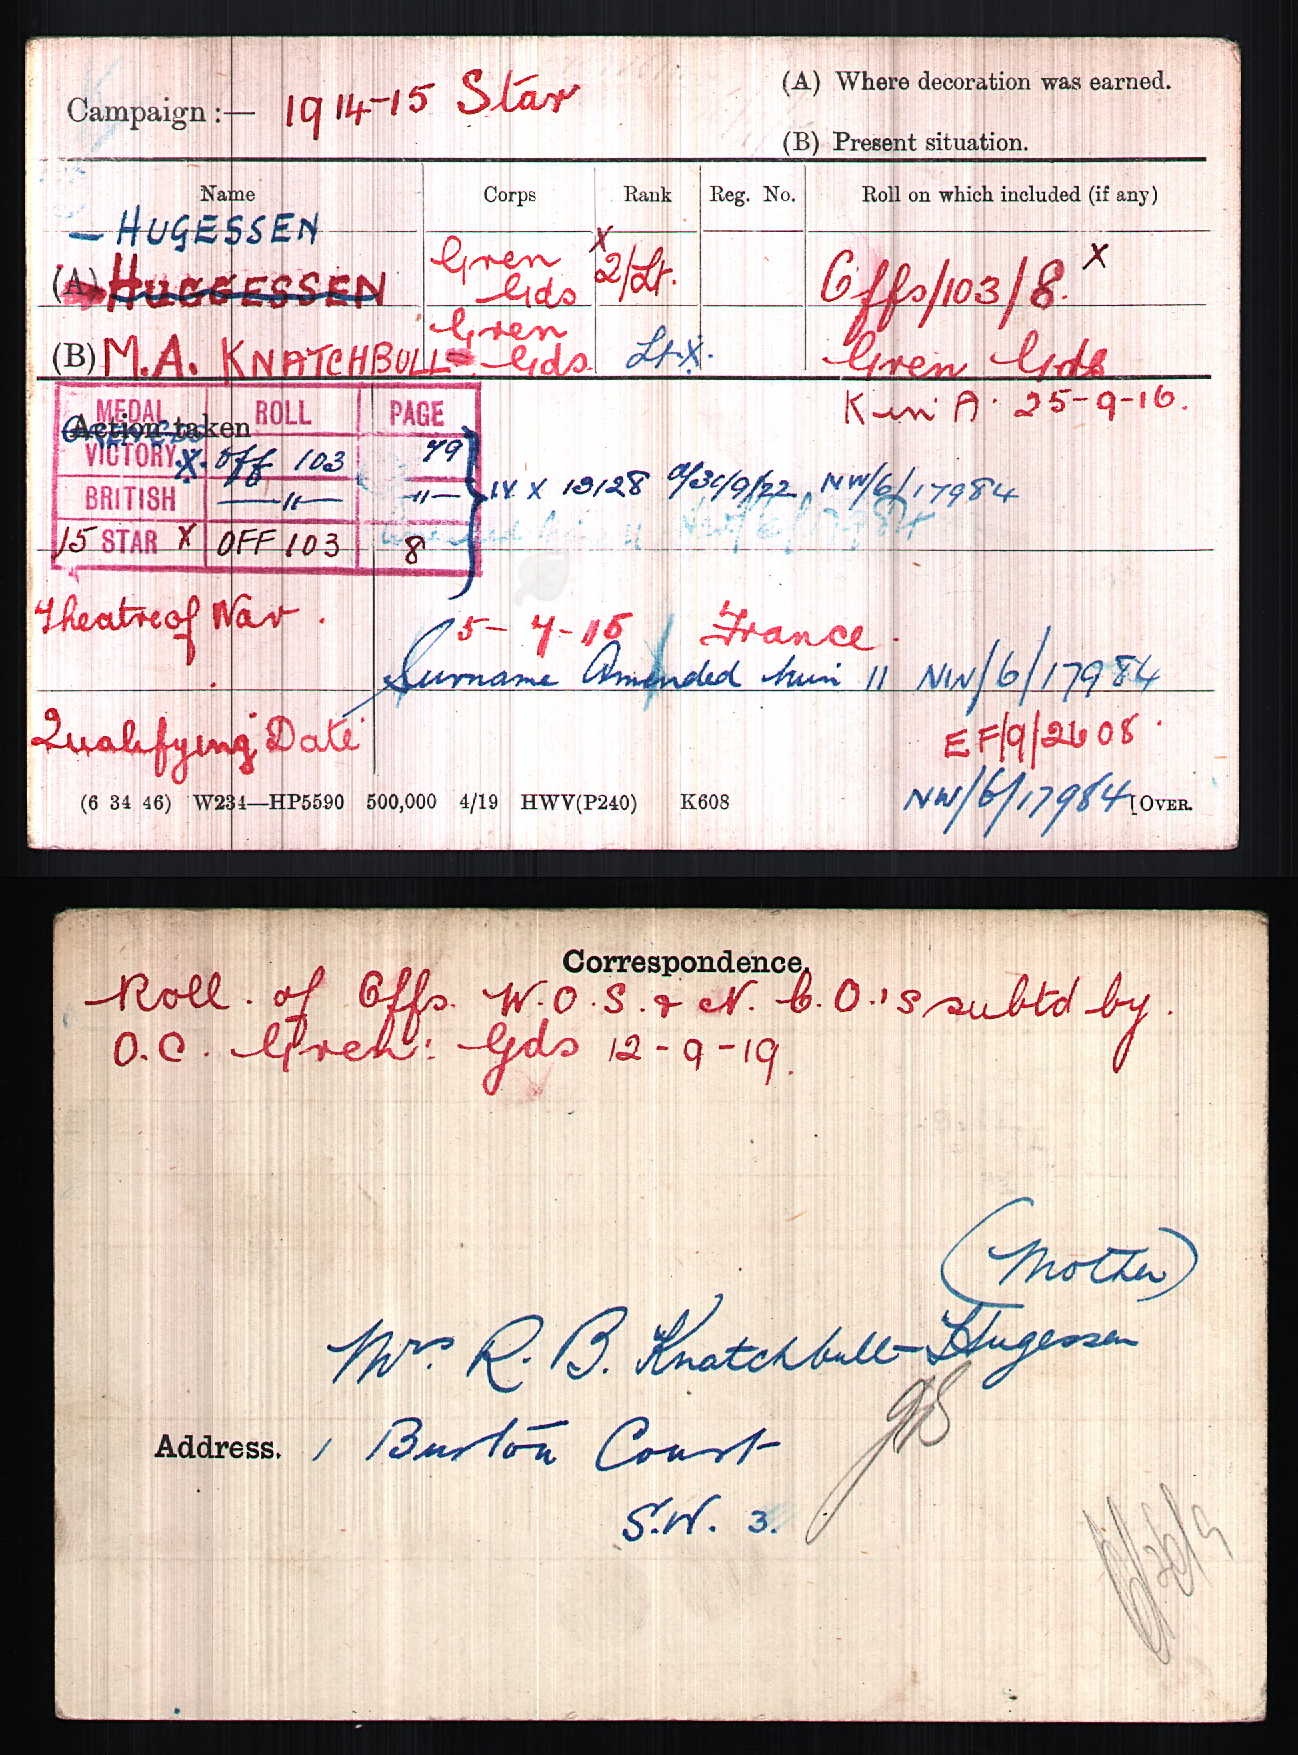 Campaign :— 1914-15 Star
(A) Where decoration was earned.
(B) Present situation.
Name Corps Rank Reg. No. Roll on which included (if any)
— HUGESSEN
(A) HUGGESSEN Gren Gds X 2/Lt. Offs/103/8. X
(B) M.A. KNATCHBULL- Gren Gds Lt. X. Gren Gds
K in A. 25-9-16.
Action taken
MEDAL ROLL PAGE
VICTORY X. Off 103 79
BRITISH —"— —"—
15 STAR X OFF 103 8
IV X 13128 NW/6/17984
Theatre of War. 5-7-15 France.
Surname Amended NW/6/17984
Qualifying Date
EF/9/2608.
NW/6/17984
(6 34 46) W234—HP5590 500,000 4/19 HWV(P240) K608 [OVER.
Correspondence.
Roll. of Offs. W.O.S. & N.C.O.'s subtd by.
O.C. Gren: Gds 12-9-19.
(Mother)
Mrs. R. B. Knatchbull-Hugessen
Address. 1 Burton Court
S.W. 3.